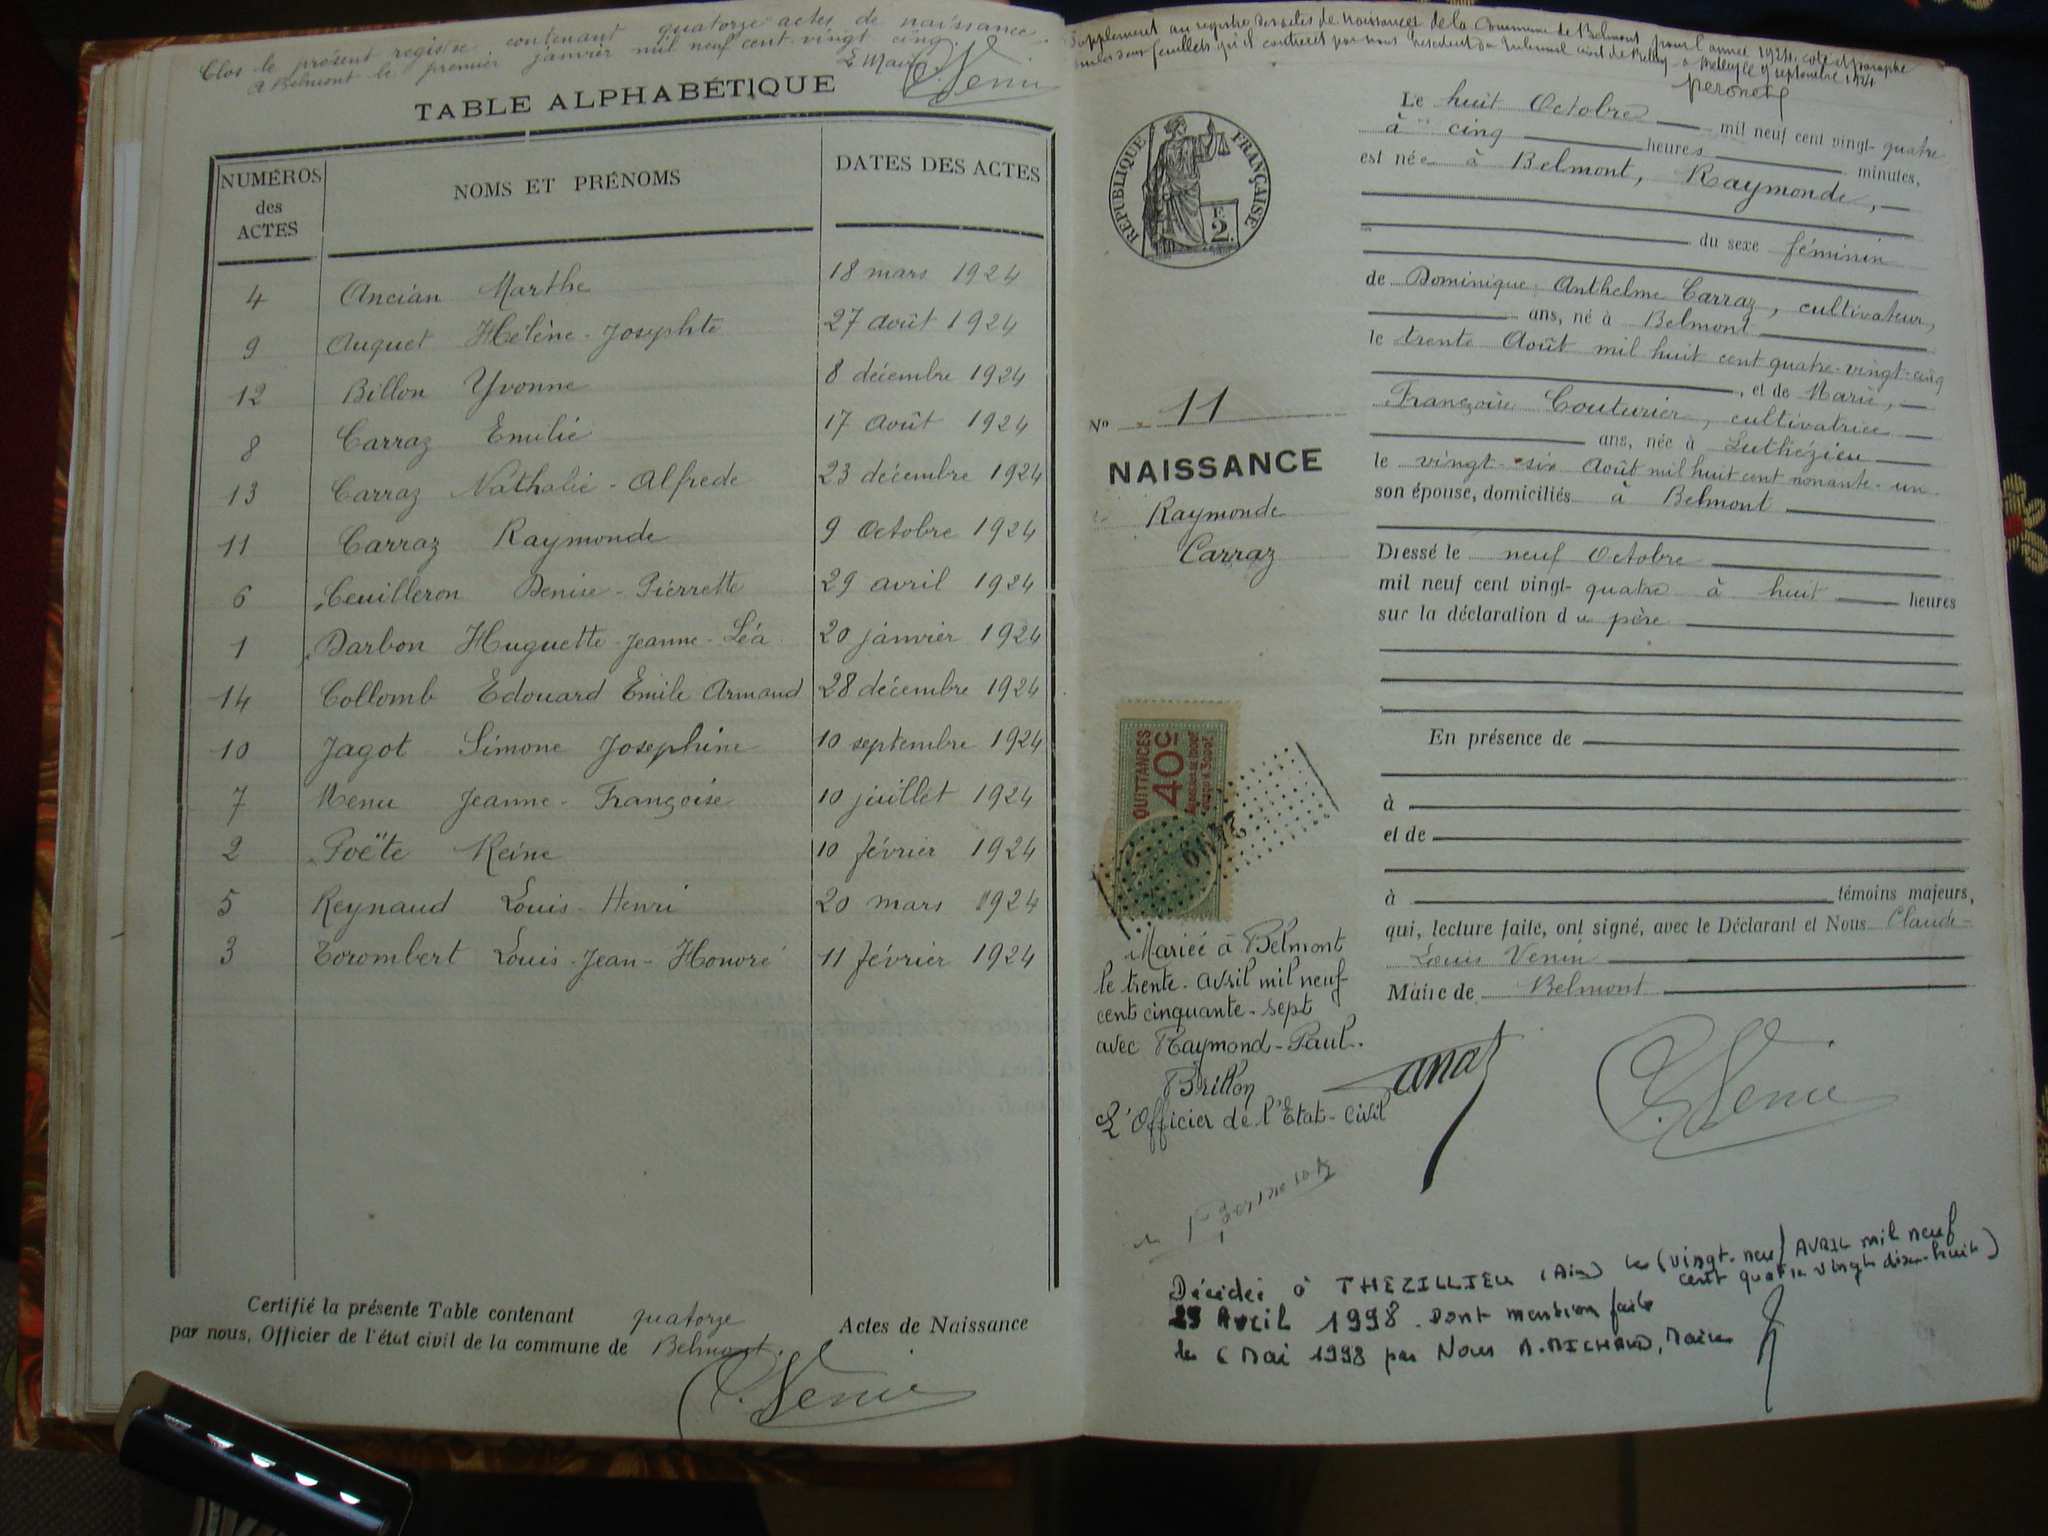 Clos le présent registre contenant quatorze actes de naissance.
A Belmont le premier janvier mil neuf cent vingt cinq
Le Maire
C. Venin
TABLE ALPHABÉTIQUE
NUMÉROS des ACTES
NOMS ET PRÉNOMS
DATES DES ACTES
4 Ancian Marthe 18 mars 1924
9 Auguet Hélène-Josephte 27 août 1924
12 Billon Yvonne 8 décembre 1924
8 Carraz Emilie 17 Août 1924
13 Carraz Nathalie-Alfrede 23 décembre 1924
11 Carraz Raymonde 9 Octobre 1924
6 Ceuilleron Denise-Pierrette 29 avril 1924
1 Darbon Huguette-Jeanne-Léa 20 janvier 1924
14 Collomb Edouard Emile Armand 28 décembre 1924
10 Jagot Simone Josephine 10 septembre 1924
7 Menu Jeanne-Françoise 10 juillet 1924
2 Poëte Reine 10 février 1924
5 Reynaud Louis-Henri 20 mars 1924
3 Torombert Louis-Jean-Honoré 11 février 1924
Certifié la présente Table contenant quatorze Actes de Naissance
par nous, Officier de l'état civil de la commune de Belmont.
C. Venin
Supplément au registre des actes de Naissances de la Commune de Belmont pour l'année 1924, coté et paraphé
feuillets qu'il contient par nous Président du Tribunal civil de Belley - à Belley le 9 septembre 1924
RÉPUBLIQUE FRANÇAISE
F. 2
Le huit Octobre mil neuf cent vingt-quatre
à cinq heures minutes,
est née à Belmont, Raymonde,
du sexe féminin
de Dominique Anthelme Carraz, cultivateur,
ans, né à Belmont
le trente Août mil huit cent quatre-vingt-cinq
, et de Marie,
Françoise Couturier, cultivatrice
ans, née à Luthézieu
le vingt-six Août mil huit cent nonante-un
son épouse, domiciliés à Belmont
Dressé le neuf Octobre
mil neuf cent vingt-quatre à huit heures
sur la déclaration du père
En présence de
à
et de
à témoins majeurs,
qui, lecture faite, ont signé, avec le Déclarant et Nous Claude-
Louis Venin
Maire de Belmont
C. Venin
No 11
NAISSANCE
Raymonde
Carraz
QUITTANCES
40c
Mariée à Belmont
le trente-avril mil neuf
cent cinquante-sept
avec Raymond-Paul
Brillon
L'Officier de l'Etat-Civil
Décédée à THEZILLIEU (Ain) le (vingt-neuf AVRIL mil neuf
cent quatre vingt dix-huit)
29 Avril 1998. Dont mention faite
le 6 Mai 1998 par Nous A. MICHAUD, Maire